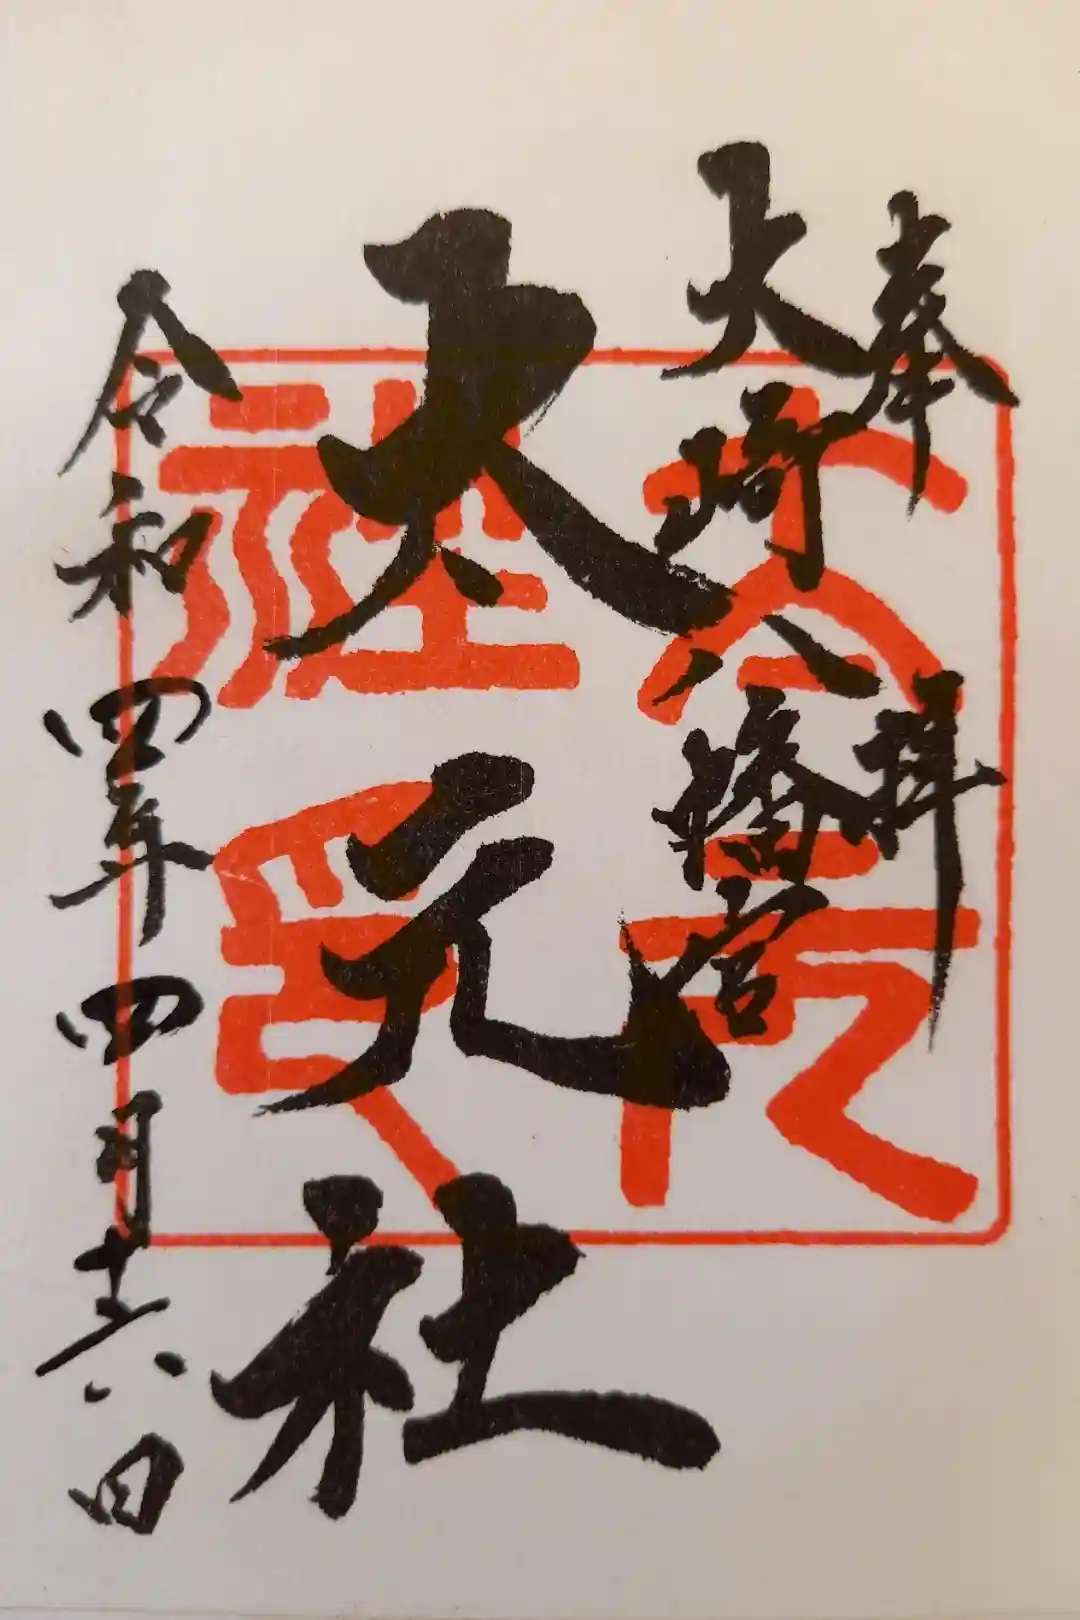 奉拝
大崎八幡宮
太元社
令和四年四月十六日
太元社印